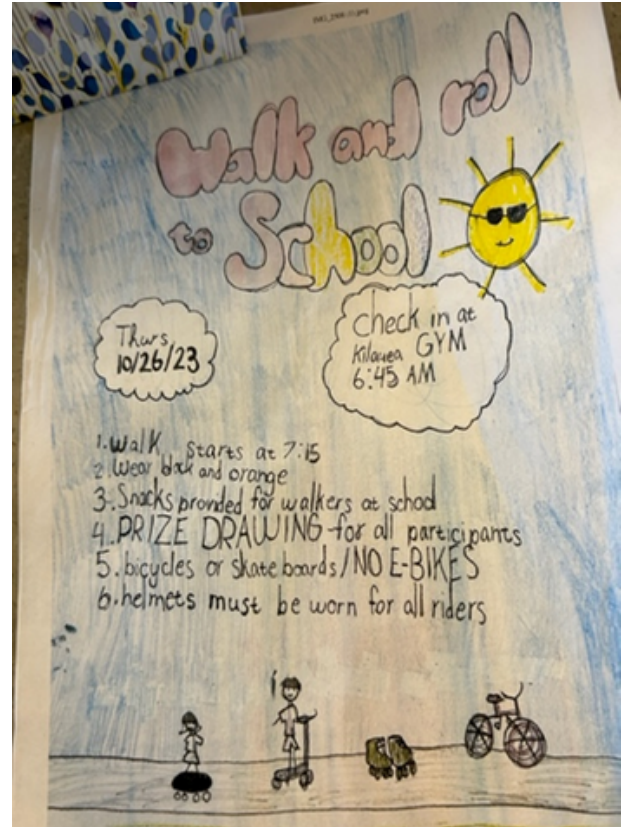 Walk and roll
to School
Thurs
10/26/23
Check in at
Kilauea GYM
6:45 AM
1. Walk starts at 7:15
2. Wear black and orange
3. Snacks provided for walkers at school
4. PRIZE DRAWING for all participants
5. bicycles or skateboards/NO E-BIKES
6. helmets must be worn for all riders